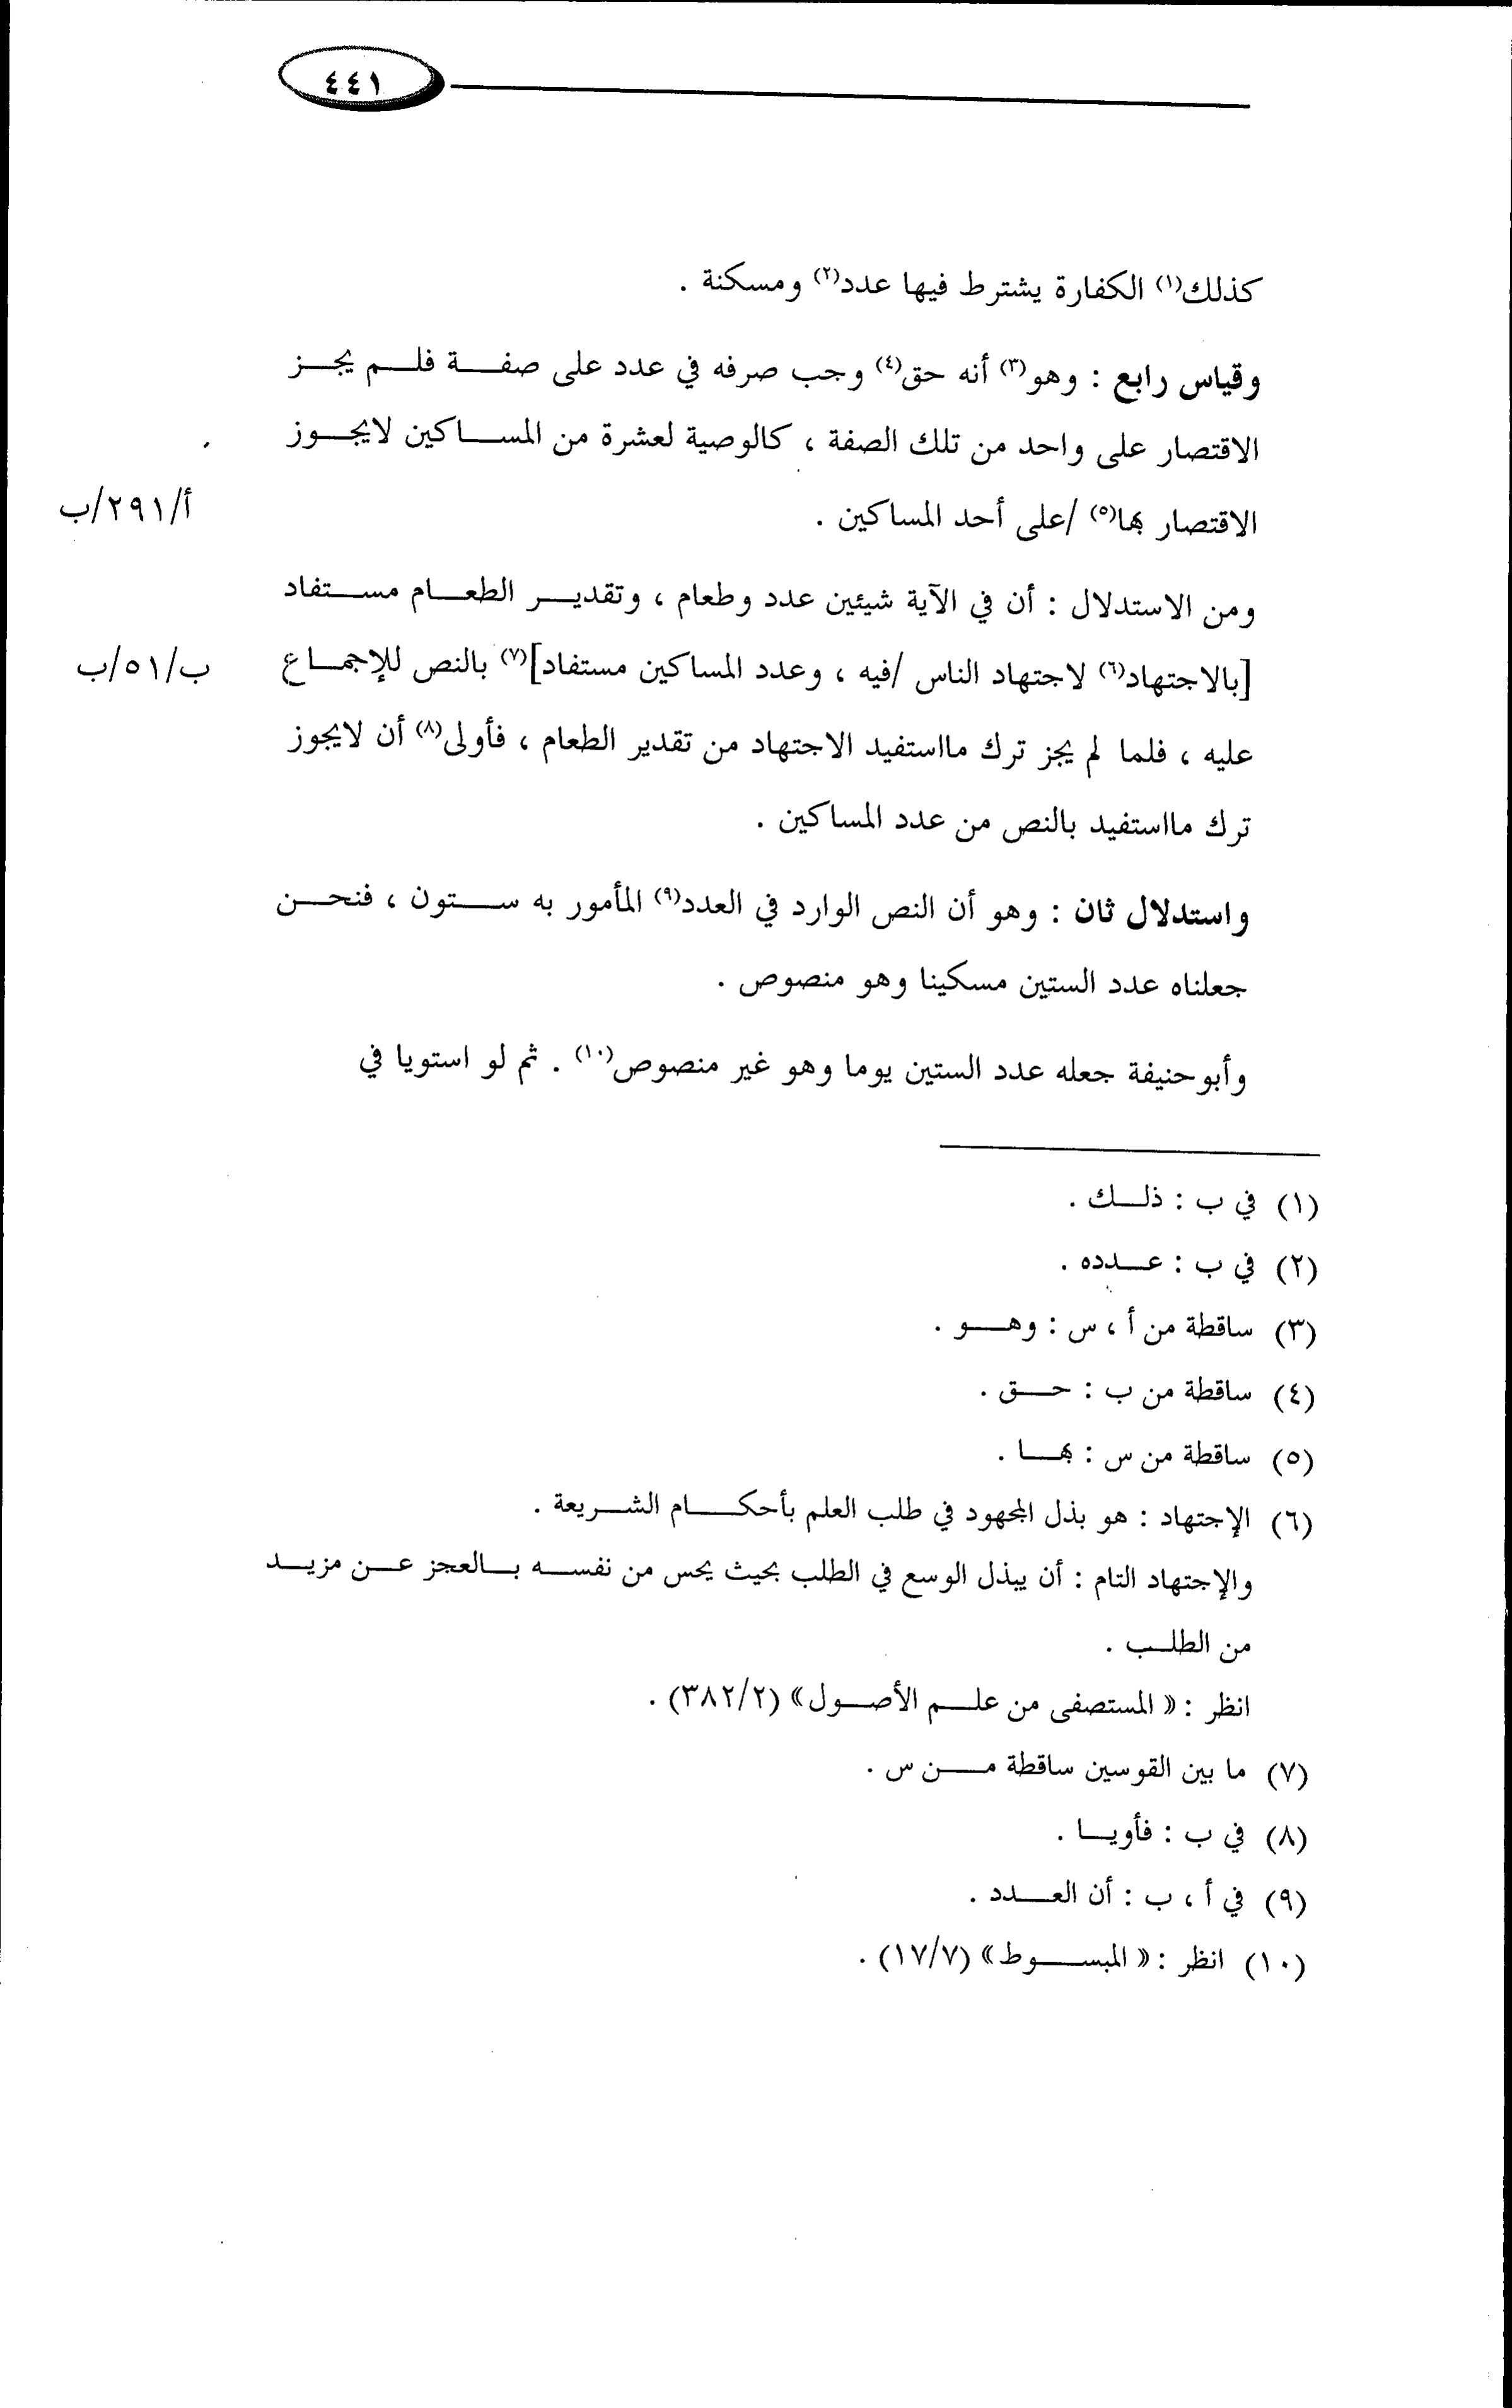 ٤٤١
كذلك(١) الكفارة يشترط فيها عدد(٢) ومسكنة .
وقياس رابع : وهو(٣) أنه حق(٤) وجب صرفه في عدد على صفة فلم يجز
الاقتصار على واحد من تلك الصفة ، كالوصية لعشرة من المساكين لايجوز
الاقتصار بها(٥) /على أحد المساكين .
أ/٢٩١/ب
ومن الاستدلال : أن في الآية شيئين عدد وطعام ، وتقدير الطعام مستفاد
[بالاجتهاد(٦) لاجتهاد الناس /فيه ، وعدد المساكين مستفاد](٧) بالنص للإجماع
ب/٥١/ب
عليه ، فلما لم يجز ترك مااستفيد الاجتهاد من تقدير الطعام ، فأولى(٨) أن لايجوز
ترك مااستفيد بالنص من عدد المساكين .
واستدلال ثان : وهو أن النص الوارد في العدد(٩) المأمور به ستون ، فنحن
جعلناه عدد الستين مسكينا وهو منصوص .
وأبوحنيفة جعله عدد الستين يوما وهو غير منصوص(١٠) . ثم لو استويا في
(١) في ب : ذلك .
(٢) في ب : عدده .
(٣) ساقطة من أ ، س : وهو .
(٤) ساقطة من ب : حق .
(٥) ساقطة من س : بها .
(٦) الإجتهاد : هو بذل المجهود في طلب العلم بأحكام الشريعة .
والإجتهاد التام : أن يبذل الوسع في الطلب بحيث يحس من نفسه بالعجز عن مزيد
من الطلب .
انظر : « المستصفى من علم الأصول» (٣٨٢/٢) .
(٧) ما بين القوسين ساقطة من س .
(٨) في ب : فأويا .
(٩) في أ ، ب : أن العدد .
(١٠) انظر : « المبسوط» (١٧/٧) .